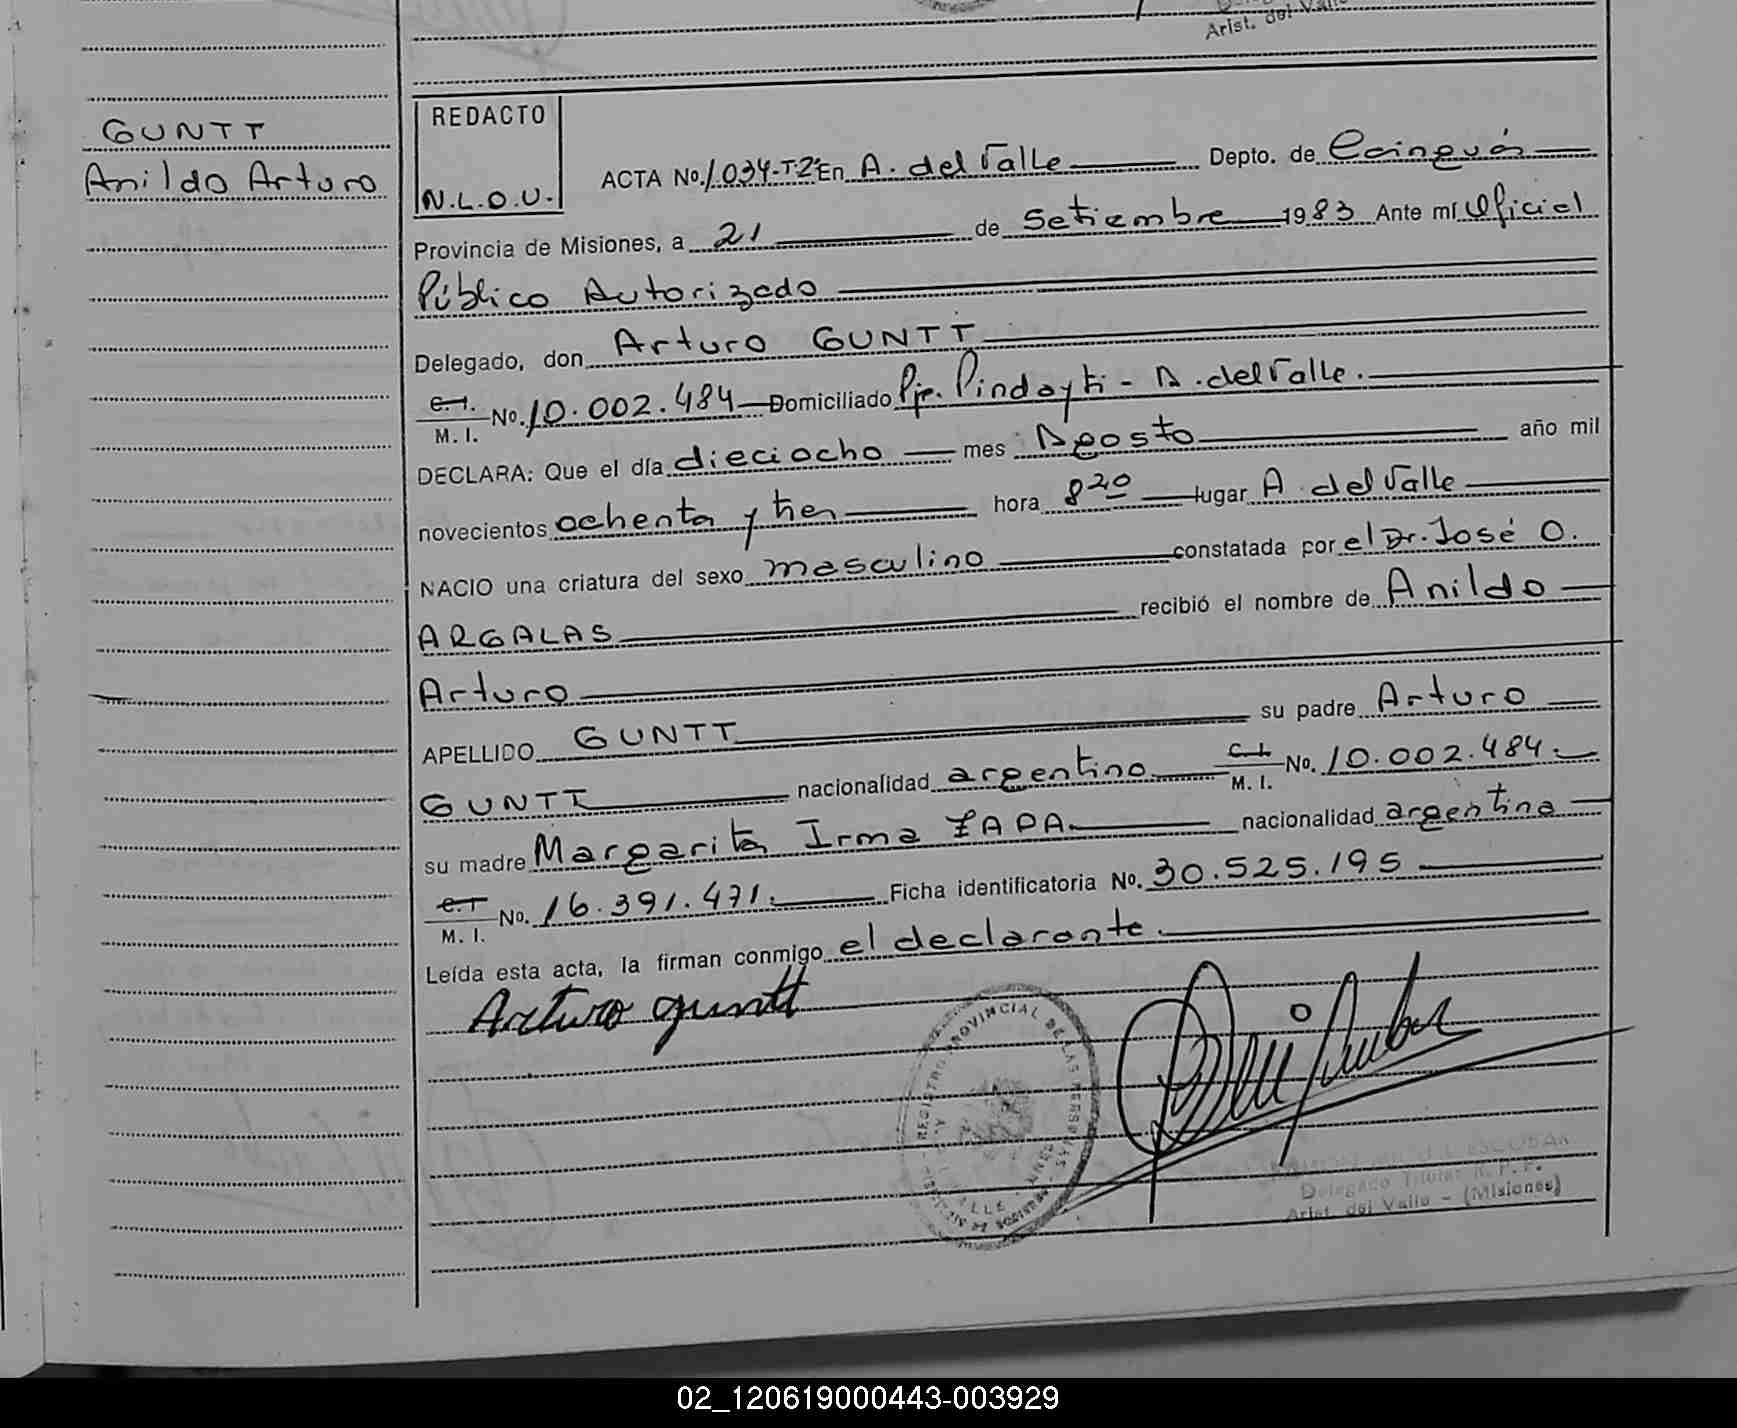 Arist. del Valle
GUNTT
Anildo Arturo
REDACTO
N.L.O.U.
ACTA No. 1.034-T-2º En A. del Valle Depto. de Cainguás
Provincia de Misiones, a 21 de Setiembre 1983 Ante mí Oficial
Público Autorizado
Delegado, don Arturo GUNTT
C.I.
M. I. No. 10.002.484 Domiciliado Pje. Pindayti - A. del Valle.
DECLARA: Que el día dieciocho mes Agosto año mil
novecientos ochenta y tres hora 8 20 lugar A. del Valle
NACIO una criatura del sexo masculino constatada por el Dr. José O.
ARGALAS recibió el nombre de Anildo
Arturo
APELLIDO GUNTT su padre Arturo
GUNTT nacionalidad argentino C.I. M. I. No. 10.002.484.
su madre Margarita Irma ZAPA nacionalidad argentina
C.I.
M. I. No. 16.391.471. Ficha identificatoria No. 30.525.195
Leída esta acta, la firman conmigo el declarante.
Arturo guntt
REGISTRO PROVINCIAL DE LAS PERSONAS
ESCOBAR
Delegado Titular R. P. P.
Arist. del Valle - (Misiones)
02_120619000443-003929